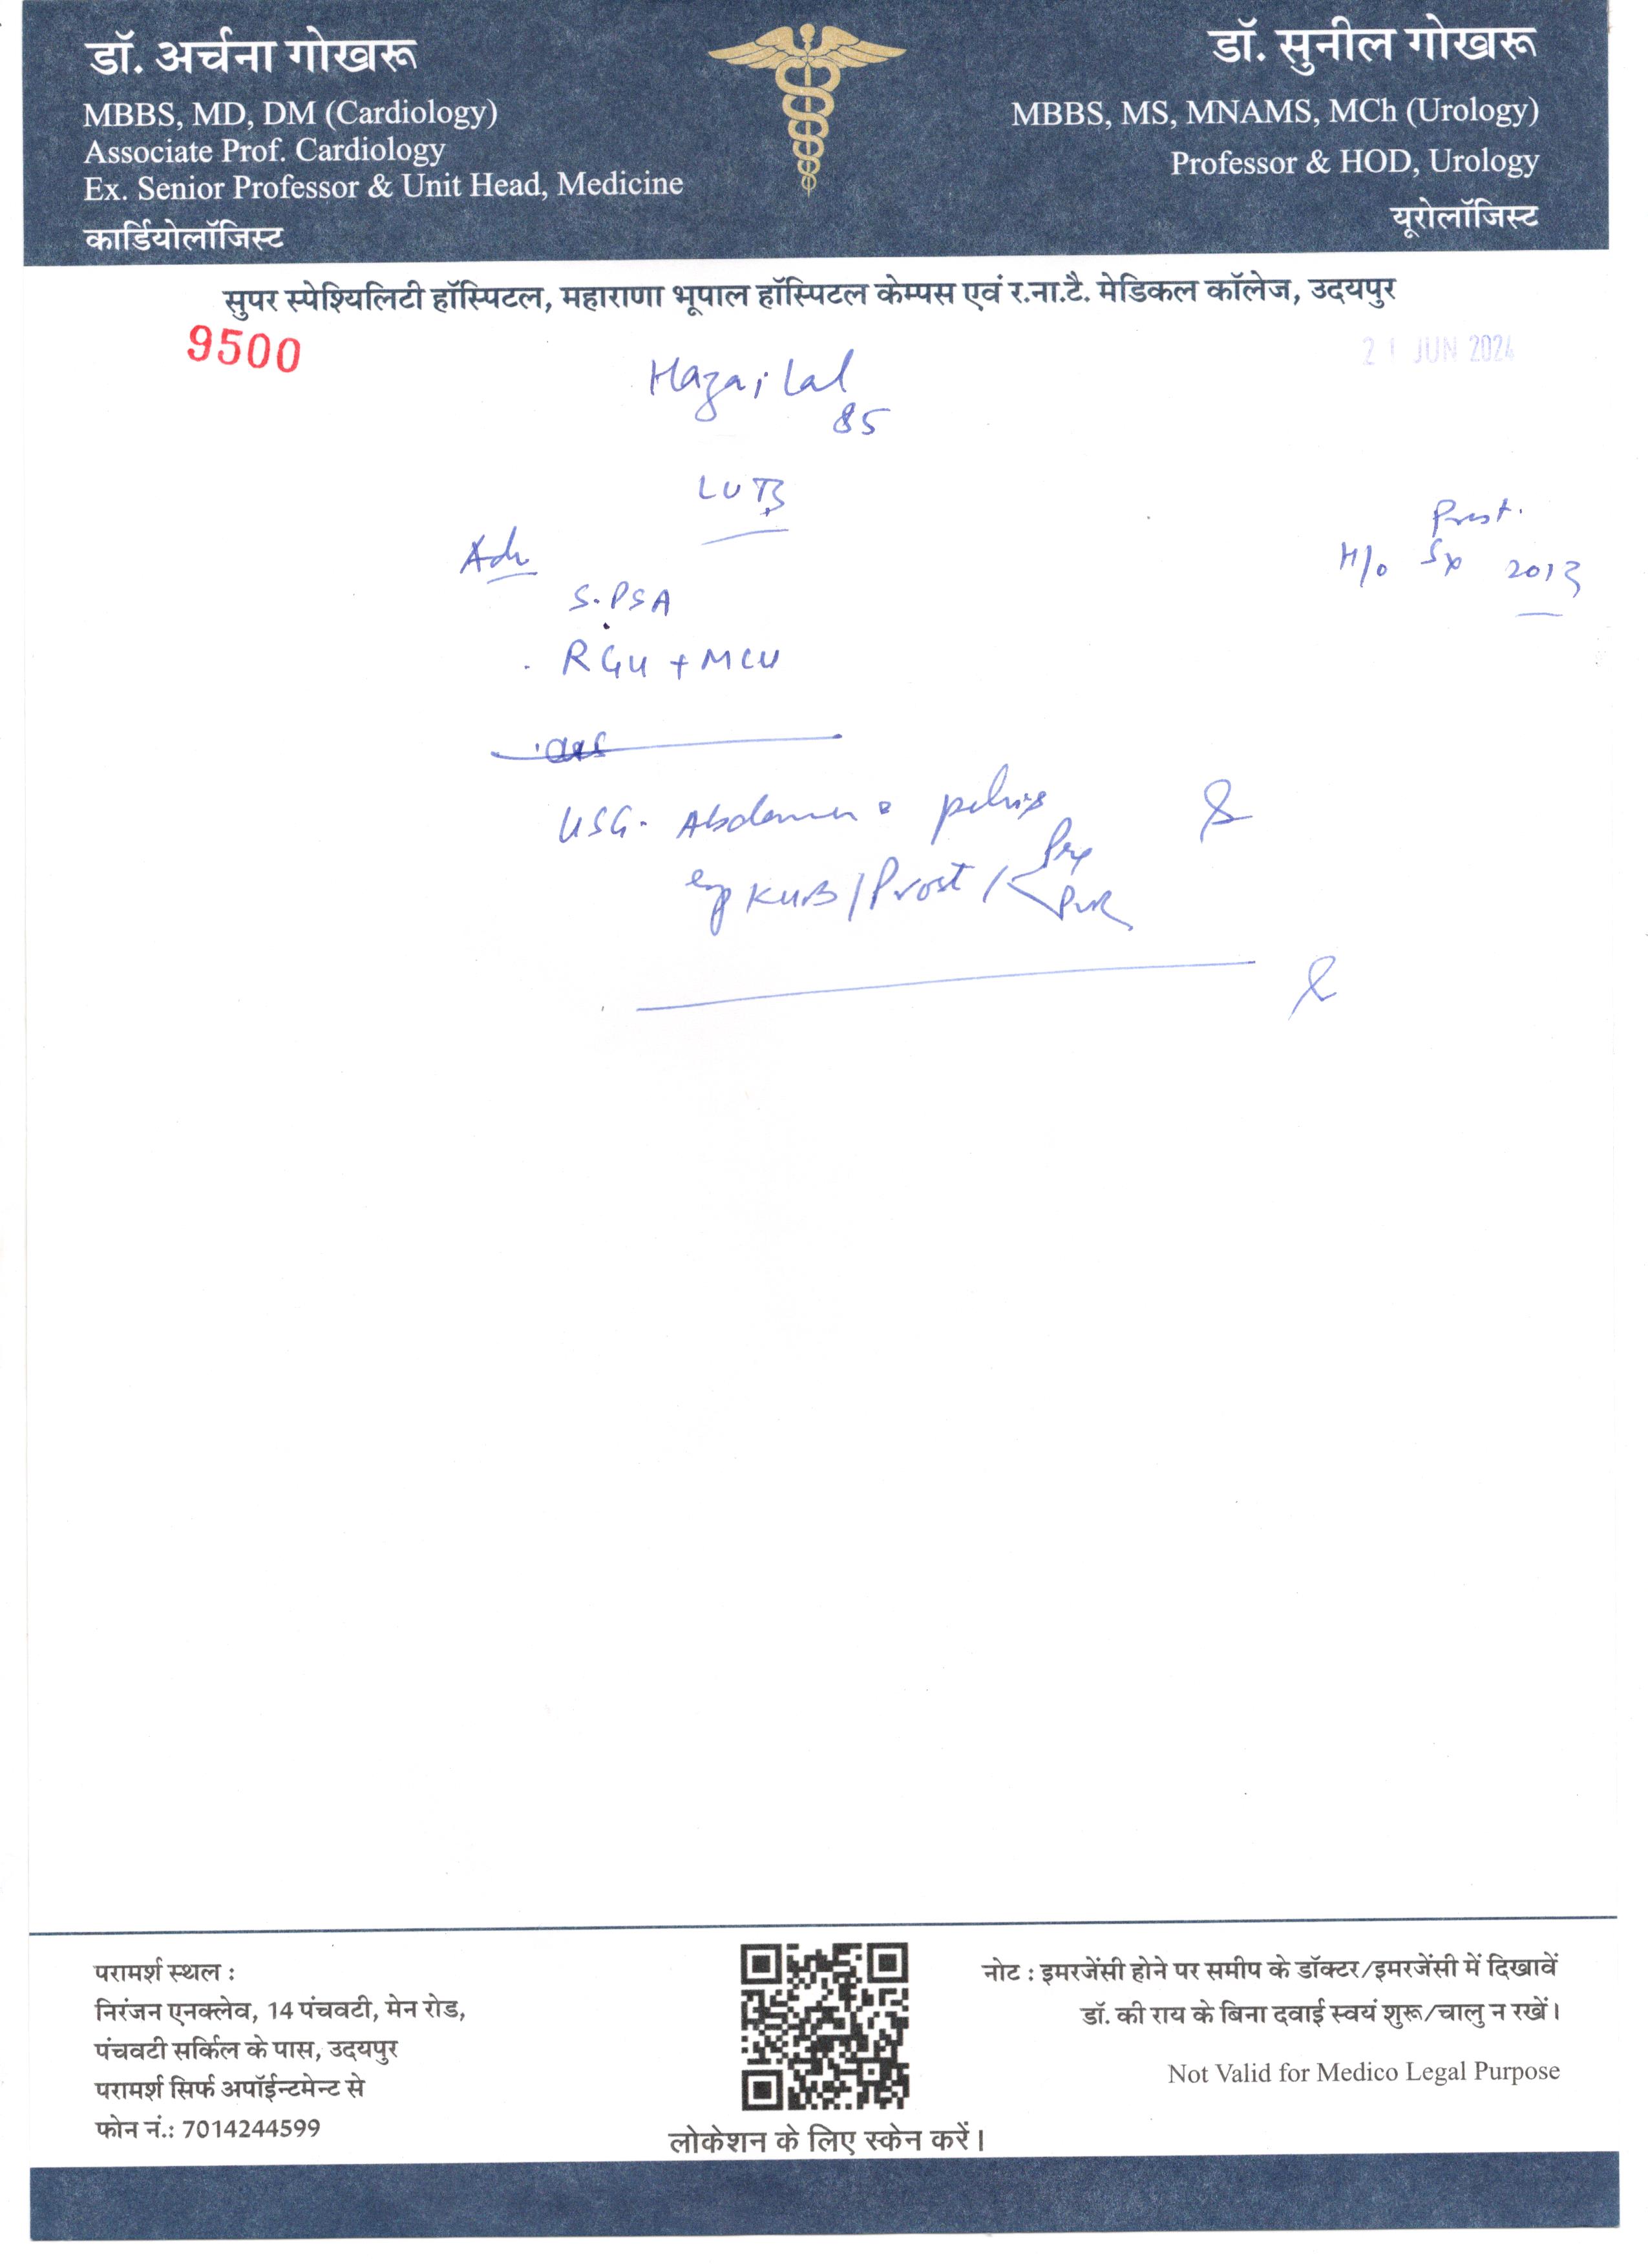 डॉ. अर्चना गोखरू
MBBS, MD, DM (Cardiology)
Associate Prof. Cardiology
Ex. Senior Professor & Unit Head, Medicine
कार्डियोलॉजिस्ट
डॉ. सुनील गोखरू
MBBS, MS, MNAMS, MCh (Urology)
Professor & HOD, Urology
यूरोलॉजिस्ट
सुपर स्पेश्यिलिटी हॉस्पिटल, महाराणा भूपाल हॉस्पिटल केम्पस एवं र.ना.टै. मेडिकल कॉलेज, उदयपुर
9500
21 JUN 2024
Lal
85
LUTS
Prost.
H/o Sx 2013
Adv
S.PSA
RGU + MCU
USG. Abdomen pelvis
KUB / Prost / Pre
PVR
परामर्श स्थल :
निरंजन एनक्लेव, 14 पंचवटी, मेन रोड,
पंचवटी सर्किल के पास, उदयपुर
परामर्श सिर्फ अपॉईन्टमेन्ट से
फोन नं.: 7014244599
लोकेशन के लिए स्केन करें।
नोट : इमरजेंसी होने पर समीप के डॉक्टर/इमरजेंसी में दिखावें
डॉ. की राय के बिना दवाई स्वयं शुरू/चालु न रखें।
Not Valid for Medico Legal Purpose